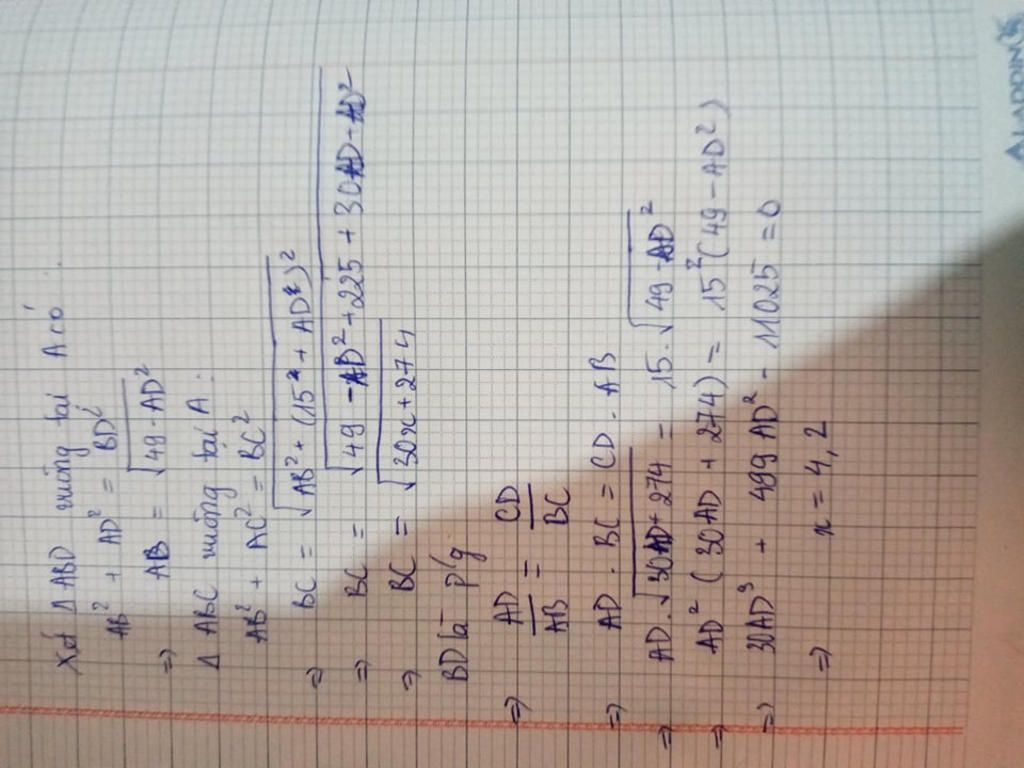 Xét ΔABD vuông tại A có
AB² + AD² = BD²
⇒ AB = √(49 - AD²)
Δ ABC vuông tại A:
AB² + AC² = BC²
⇒ BC = √(AB² + (15 + AD)²)
⇒ BC = √(49 - AD² + 225 + 30AD - AD²)
⇒ BC = √(30x + 274)
BD là p/g
⇒ AD/AB = CD/BC
⇒ AD . BC = CD . AB
⇒ AD . √(30AD + 274) = 15 . √(49 - AD²)
⇒ AD² (30AD + 274) = 15² (49 - AD²)
⇒ 30AD³ + 499 AD² - 11025 = 0
⇒ x = 4,2
ALADDIN